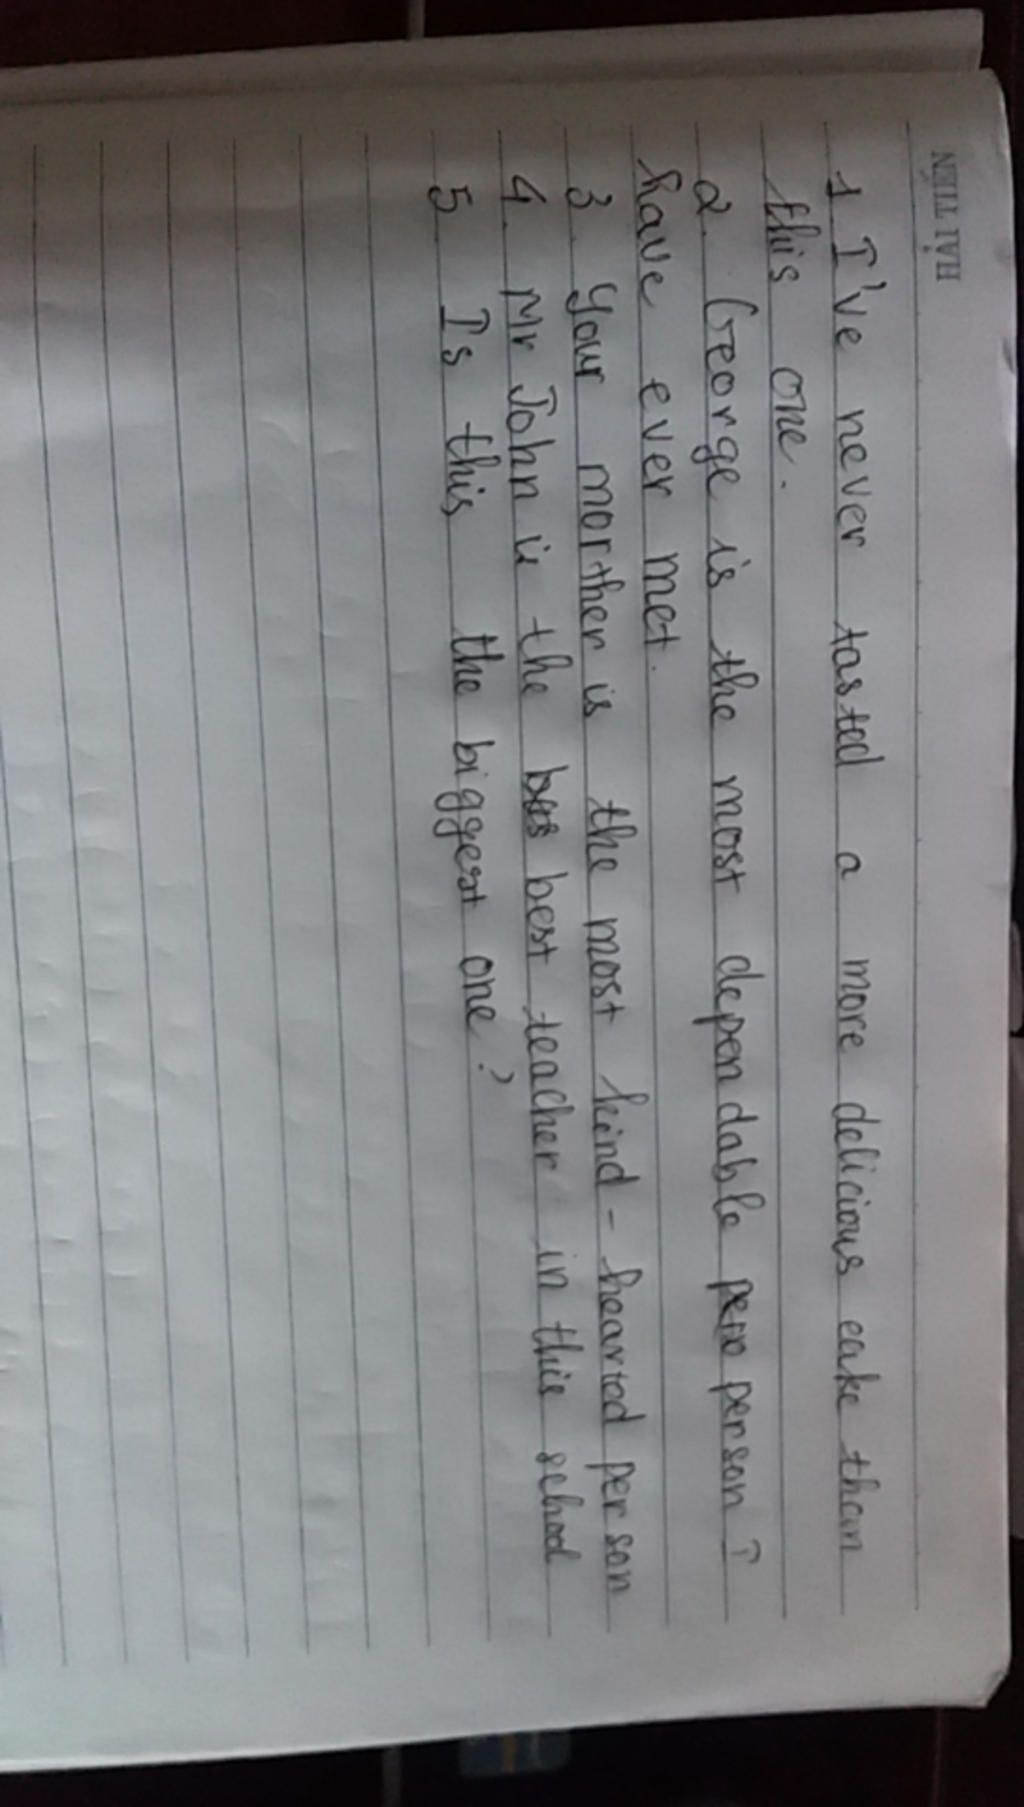 HẢI TIẾN
1 I've never tasted a more delicious cake than
this one.
2. George is the most dependable person I
have ever met.
3 Your morther is the most kind-hearted person
4. Mr John is the best teacher in this school
5 Is this the biggest one?